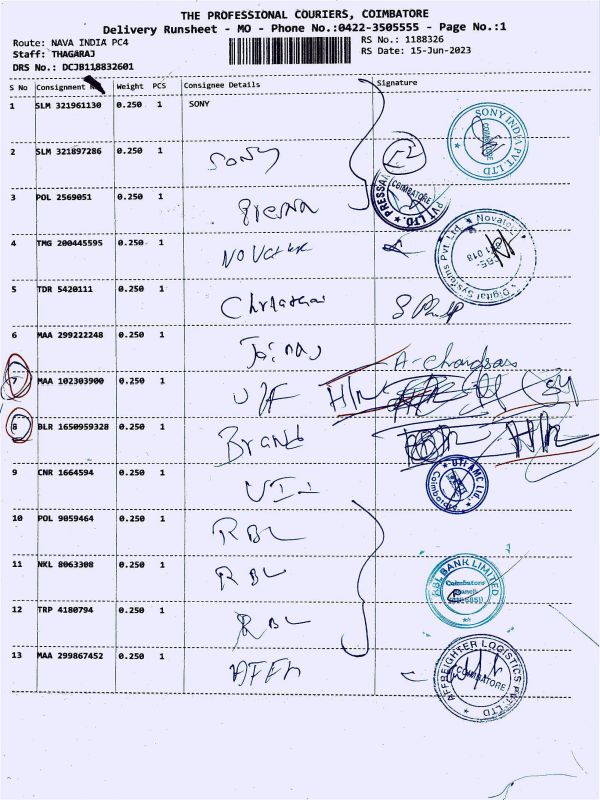 THE PROFESSIONAL COURIERS, COIMBATORE
Delivery Runsheet - MO - Phone No.:0422-3505555 - Page No.:1
Route: NAVA INDIA PC4
RS No.: 1188326
Staff: THAGARAJ
RS Date: 15-Jun-2023
DRS No.: DCJB118832601
S No Consignment Weight PCS Consignee Details Signature
1 SLM 321961130 0.250 1 SONY
SONY INDIA PVT. LTD
COIMBATORE
2 SLM 321897286 0.250 1 SONY
PVT LTD. PRESSA
COIMBATORE
3 POL 2569051 0.250 1
4 TMG 200445595 0.250 1
Novatec Digital Systems Pvt. Ltd
5 TDR 5420111 0.250 1
6 MAA 299222248 0.250 1
A-Chandran
7 MAA 102303900 0.250 1
8 BLR 1650959328 0.250 1 Brand
9 CNR 1664594 0.250 1 UTI
UTI AMC Ltd.
Coimbatore
10 POL 9059464 0.250 1 RBL
11 NKL 8063308 0.250 1 RBL
RBL BANK LIMITED
Coimbatore
Branch
12 TRP 4180794 0.250 1 RBL
13 MAA 299867452 0.250 1 AFFL
AFFREIGHTER LOGISTICS PVT. LTD
COIMBATORE